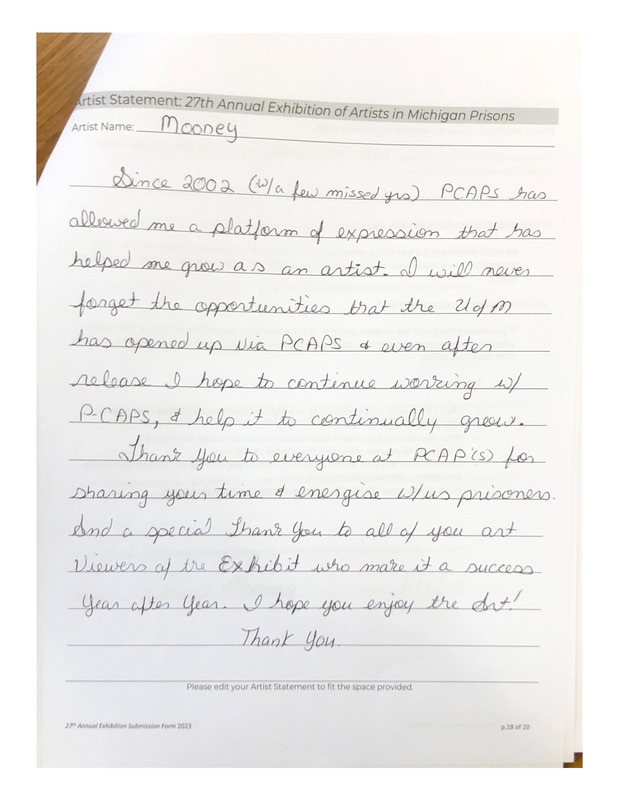 Artist Statement: 27th Annual Exhibition of Artists in Michigan Prisons
Artist Name: Mooney
Since 2002 (w/a few missed yrs) PCAPS has
allowed me a platform of expression that has
helped me grow as an artist. I will never
forget the opportunities that the U of M
has opened up via PCAPS & even after
release I hope to continue working w/
P-CAPS, & help it to continually grow.
Thank You to everyone at PCAP'(s) for
sharing your time & energise w/us prisoners.
And a special Thank You to all of you art
Viewers of the Exhibit who make it a success
Year after Year. I hope you enjoy the Art!
Thank You.
Please edit your Artist Statement to fit the space provided.
27th Annual Exhibition Submission Form 2023
p.18 of 20